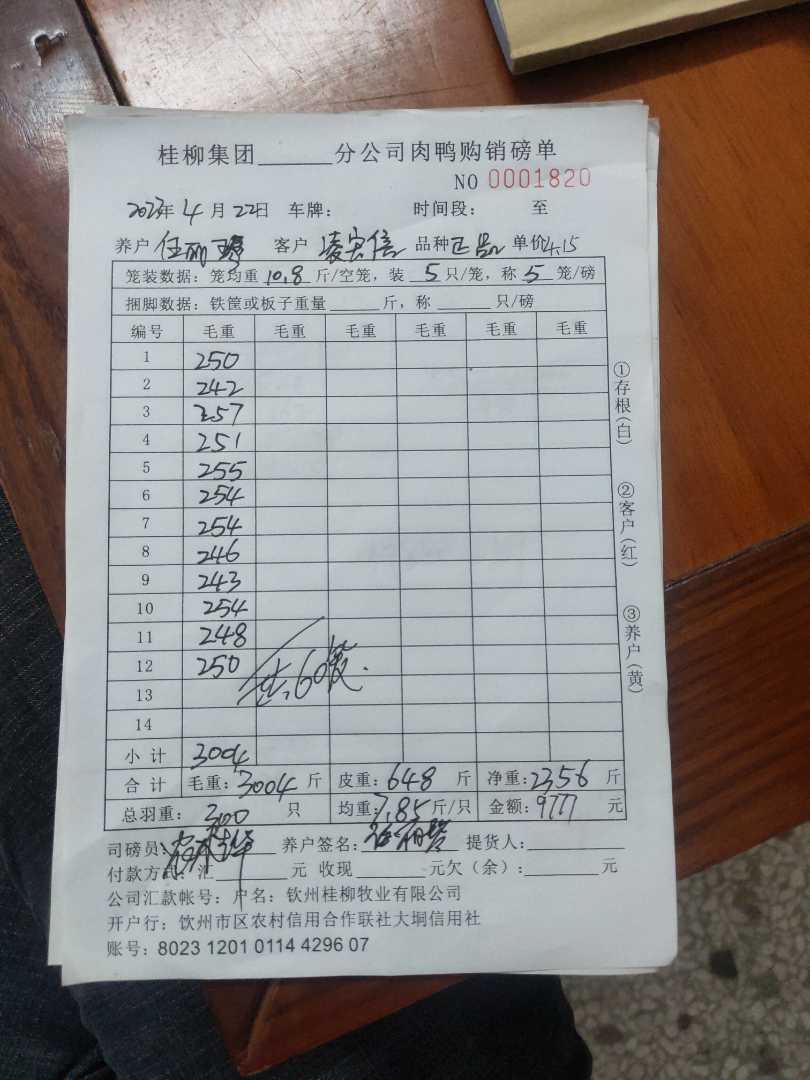 桂柳集团______分公司肉鸭购销磅单
NO 0001820
2023年4月22日 车牌： 时间段： 至
养户 任丽 客户 凌宾信 品种 正品 单价4.15
笼装数据：笼均重 10.8 斤/空笼，装 5 只/笼，称 5 笼/磅
捆脚数据：铁筐或板子重量______斤，称______只/磅
编号 毛重 毛重 毛重 毛重 毛重 毛重
1 250
2 242
3 257
4 251
5 255
6 254
7 254
8 246
9 243
10 254
11 248
12 250
13 共60笼.
14
小计 3004
合计 毛重：3004斤 皮重：648斤 净重：2356斤
总羽重：300只 均重：7.85斤/只 金额：9777元
司磅员： 养户签名： 提货人：______
付款方式：汇______元 收现______元欠（余）：______元
公司汇款帐号：户名：钦州桂柳牧业有限公司
开户行：钦州市区农村信用合作联社大垌信用社
账号：8023 1201 0114 4296 07
①存根（白）
②客户（红）
③养户（黄）